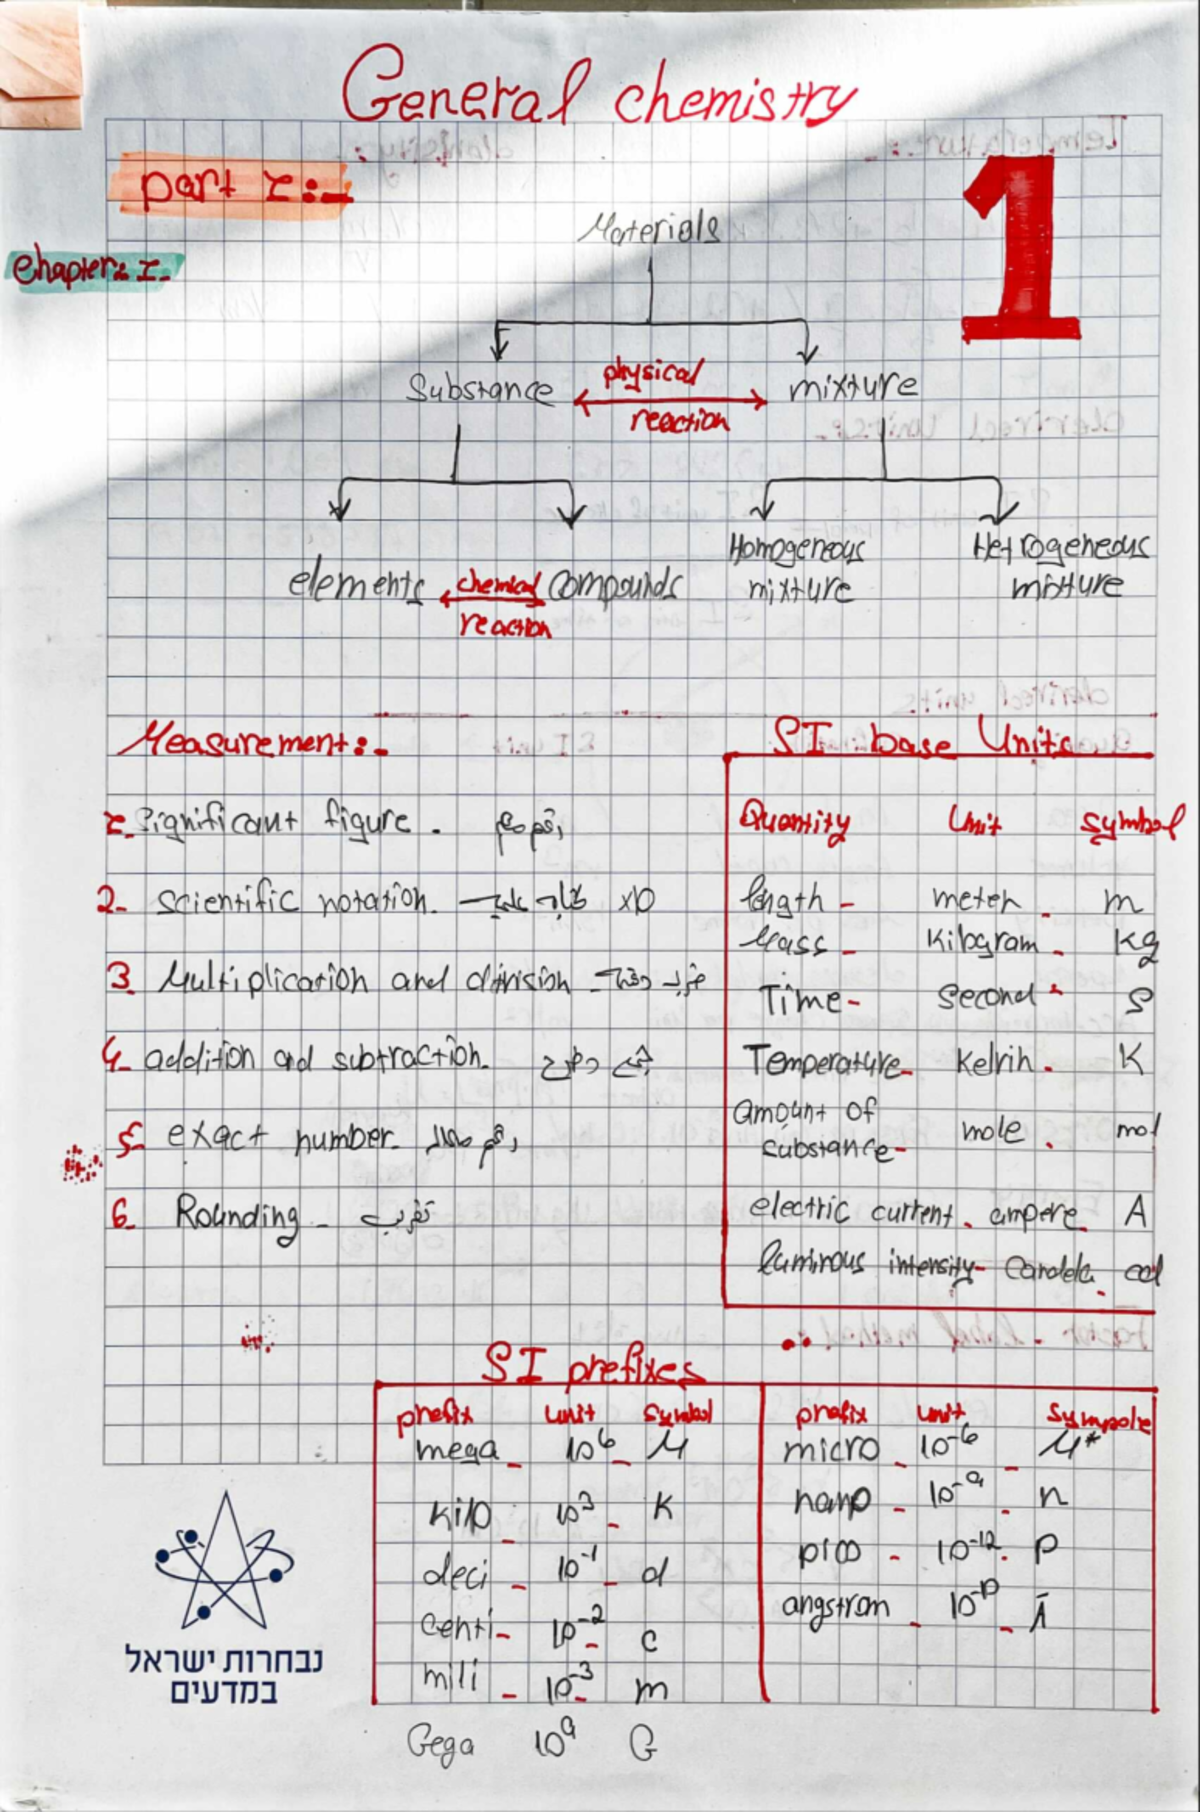 General chemistry
part I:-
1
chapter: I-
Materials
Substance physical reaction mixture
elements chemical reaction compounds
Homogeneous mixture
Hetrogeneous mixture
Measurement:-
1- Significant figure.
2- scientific notation. x10
3- Multiplication and division - ضرب وقسمة
4- addition and subtraction. جمع وطرح
5- exact number. رقم
6- Rounding - تقريب
SI base Units
Quantity Unit symbol
length - meter - m
Mass - Kilogram - Kg
Time - Second - S
Temperature - Kelvin - K
amount of substance - mole - mol
electric current - ampere - A
luminous intensity - Candela - cd
SI prefixes
prefix unit Symbol
mega - 10⁶ - M
Kilo - 10³ - K
deci - 10⁻¹ - d
Centi - 10⁻² - c
mili - 10⁻³ - m
Gega 10⁹ G
prefix unit Sympole
micro - 10⁻⁶ - M*
nano - 10⁻⁹ - n
pico - 10⁻¹² - p
angstrom - 10⁻¹⁰ - Å
נבחרות ישראל
במדעים